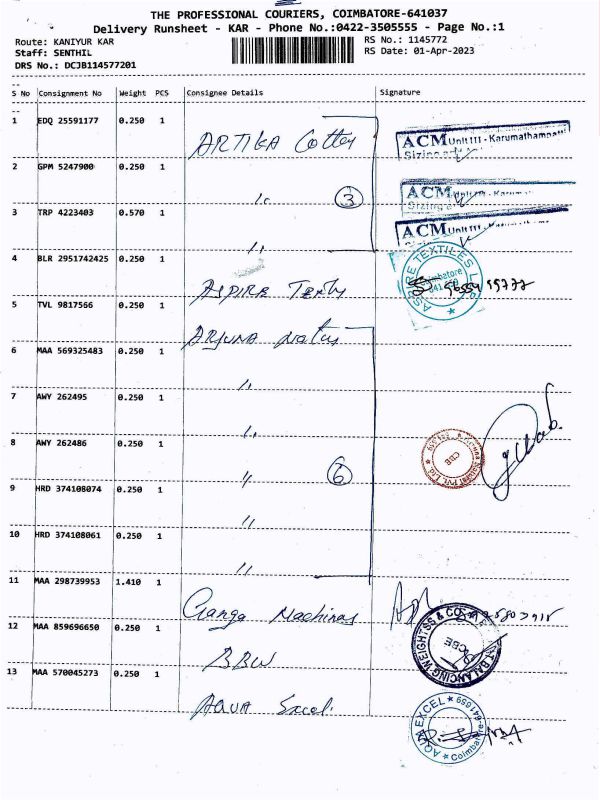 THE PROFESSIONAL COURIERS, COIMBATORE-641037
Delivery Runsheet - KAR - Phone No.:0422-3505555 - Page No.:1
Route: KANIYUR KAR
RS No.: 1145772
Staff: SENTHIL
RS Date: 01-Apr-2023
DRS No.: DCJB114577201
S No Consignment No Weight PCS Consignee Details Signature
1 EDQ 25591177 0.250 1
ARTIKA
ACM Unit III - Karumathampatti
Sizing
2 GPM 5247900 0.250 1
3
ACM
Sizing
3 TRP 4223403 0.570 1
ACM Unit III
4 BLR 2951742425 0.250 1
ASPIRE
ASPIRE TEXTILES
Coimbatore
5 TVL 9817566 0.250 1
ARJUNA
6 MAA 569325483 0.250 1
7 AWY 262495 0.250 1
8 AWY 262486 0.250 1
6
CBE
9 HRD 374108074 0.250 1
10 HRD 374108061 0.250 1
11 MAA 298739953 1.410 1
Ganga Machinas
12 MAA 859696650 0.250 1
BBW
BALANCING WEIGHTSS &
CBE
13 MAA 570045273 0.250 1
AQUA Excel
AQUA EXCEL
Coimbatore-641659